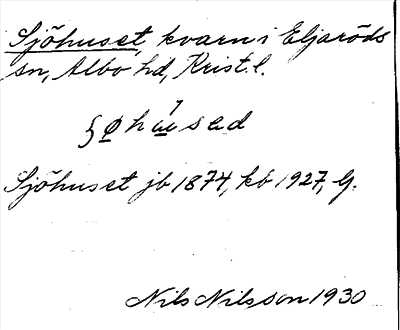 Sjöhuset, kvarn i Eljaröds
sn, Albo hd, Krist. l.
Sjöhuset jb 1874, kb 1927, G.
Nils Nilsson 1930